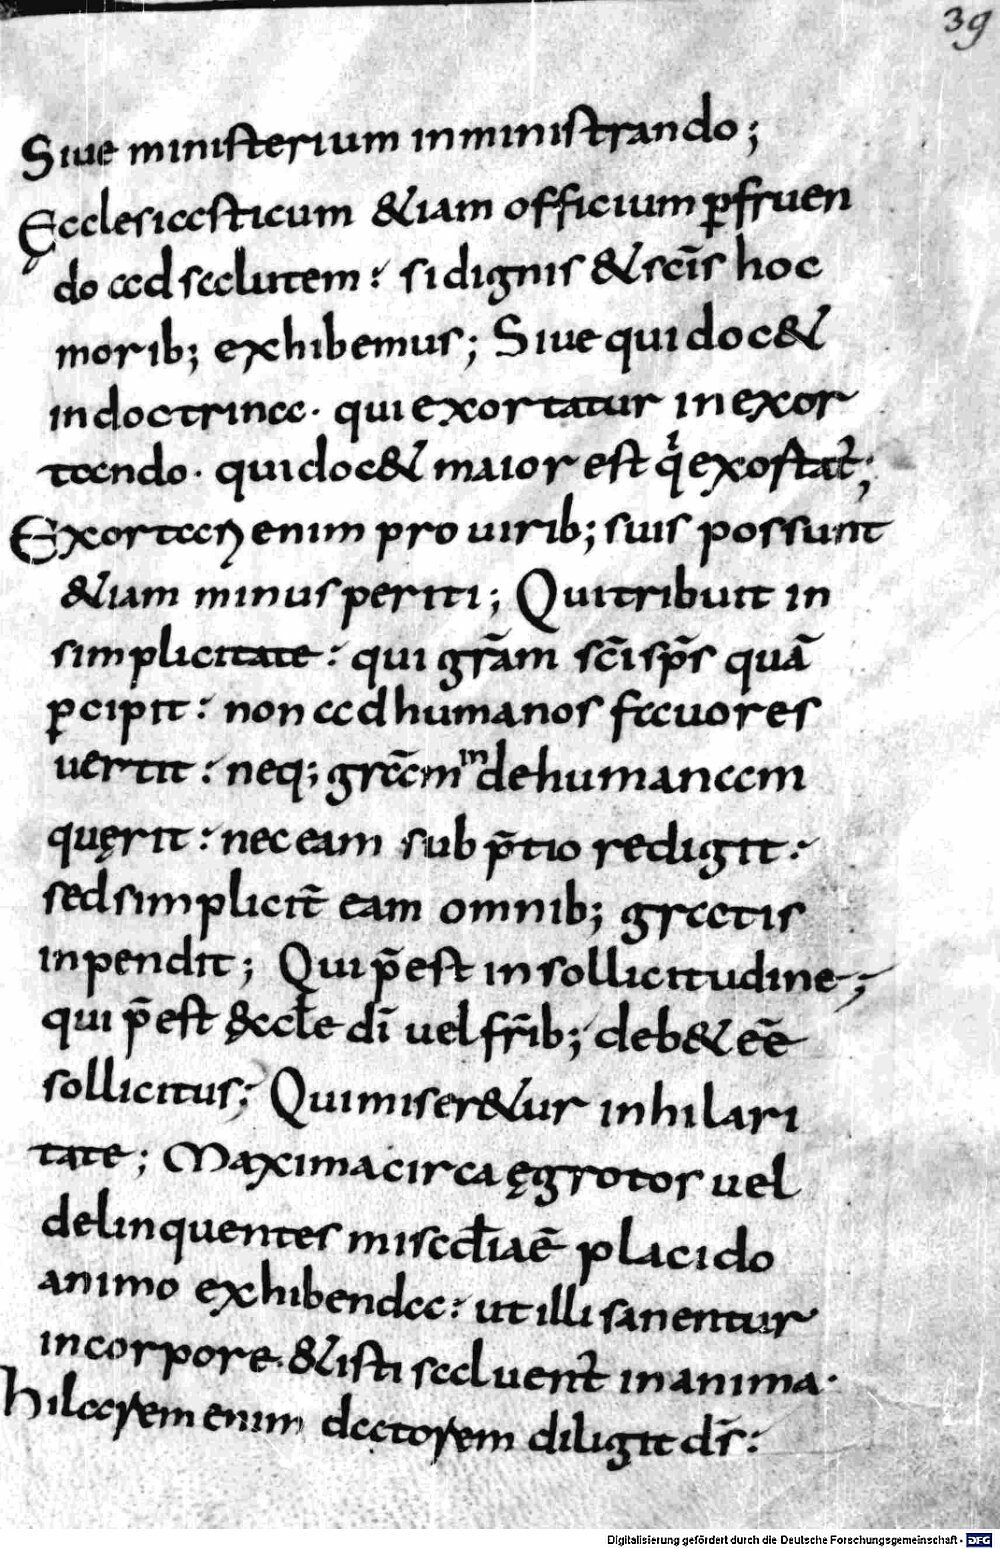 39
Siue ministerium inministrando;
Ęcclesiasticum &iam officium p̱fruen
do ad salutem: si dignis & sc̄is hoc
morib; exhibemus; Siue qui doc&
in doctrina. qui exortatur in exor
tando. qui doc& maior est qͥ exostat̄;
Exortari enim pro uirib; suis possunt
&iam minus periti; Qui tribuit in
simplicitate: qui gr̄am sc̄i sp̄s quā
p̱cipit: non ad humanos fauores
uertit: neq; gratiam inde humanam
quęrit: nec eam sub p̄tio redigit:
sed simplicit̄ eam omnib; gratis
inpendit; Qui p̄est in sollicitudine;
qui p̄est ęccłe dī uel fr̄ib; deb& eē
sollicitus; Qui miser&ur in hilari
tate; Maxima circa ęgrotos uel
delinquentes miscđia ē placido
animo exhibenda: ut illi sanentur
in corpore. & isti saluent̄ in anima.
hilarem enim datorem diligit ds̄:
Digitalisierung gefördert durch die Deutsche Forschungsgemeinschaft - DFG